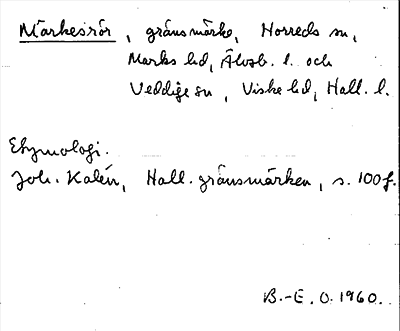 Märkesrör, gränsmärke, Horreds sn,
Marks hd, Älvsb. l. och
Veddige sn, Viske hd, Hall. l.
Etymologi.
Joh. Kalén, Hall. gränsmärken, s. 100 f.
B.-E. O. 1960.